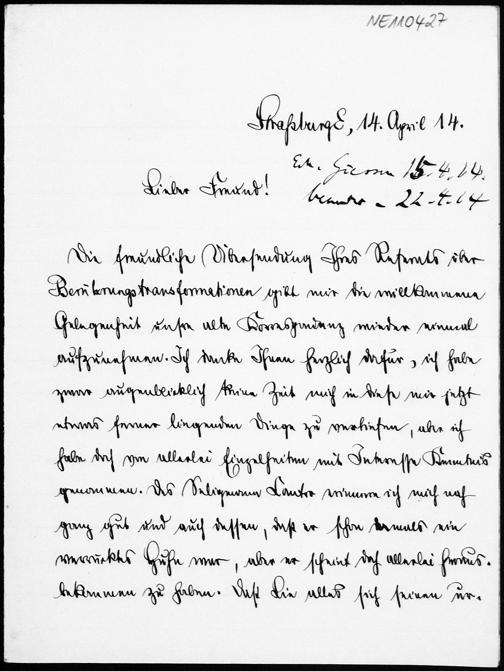 NE110427
Straßburg E, 14. April 14.
Erh. Giessen 15.4.14.
beantw. – 22-4-14
Lieber Freund!
Die freundliche Übersendung Ihres Referats über
Berührungstransformationen gibt mir die willkommene
Gelegenheit unsre alte Korrespondenz wieder einmal
aufzunehmen. Ich danke Ihnen herzlich dafür, ich habe
zwar augenblicklich keine Zeit mich in diese mir jetzt
etwas ferner liegenden Dinge zu vertiefen, aber ich
habe doch von allerlei Einzelheiten mit Interesse Kenntnis
genommen. Des Seligmann Kantor erinnere ich mich noch
ganz gut und auch dessen, daß er schon damals ein
verrücktes Huhn war, aber er scheint doch allerlei heraus-
bekommen zu haben. Daß Sie alles sich seinen ur-